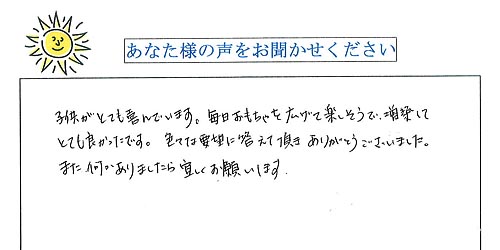 あなた様の声をお聞かせください
子供がとても喜んでいます。毎日おもちゃを広げて楽しそうで、増築して
とても良かったです。色々な要望に答えて頂き ありがとうございました。
また何かありましたら宜しくお願いします.